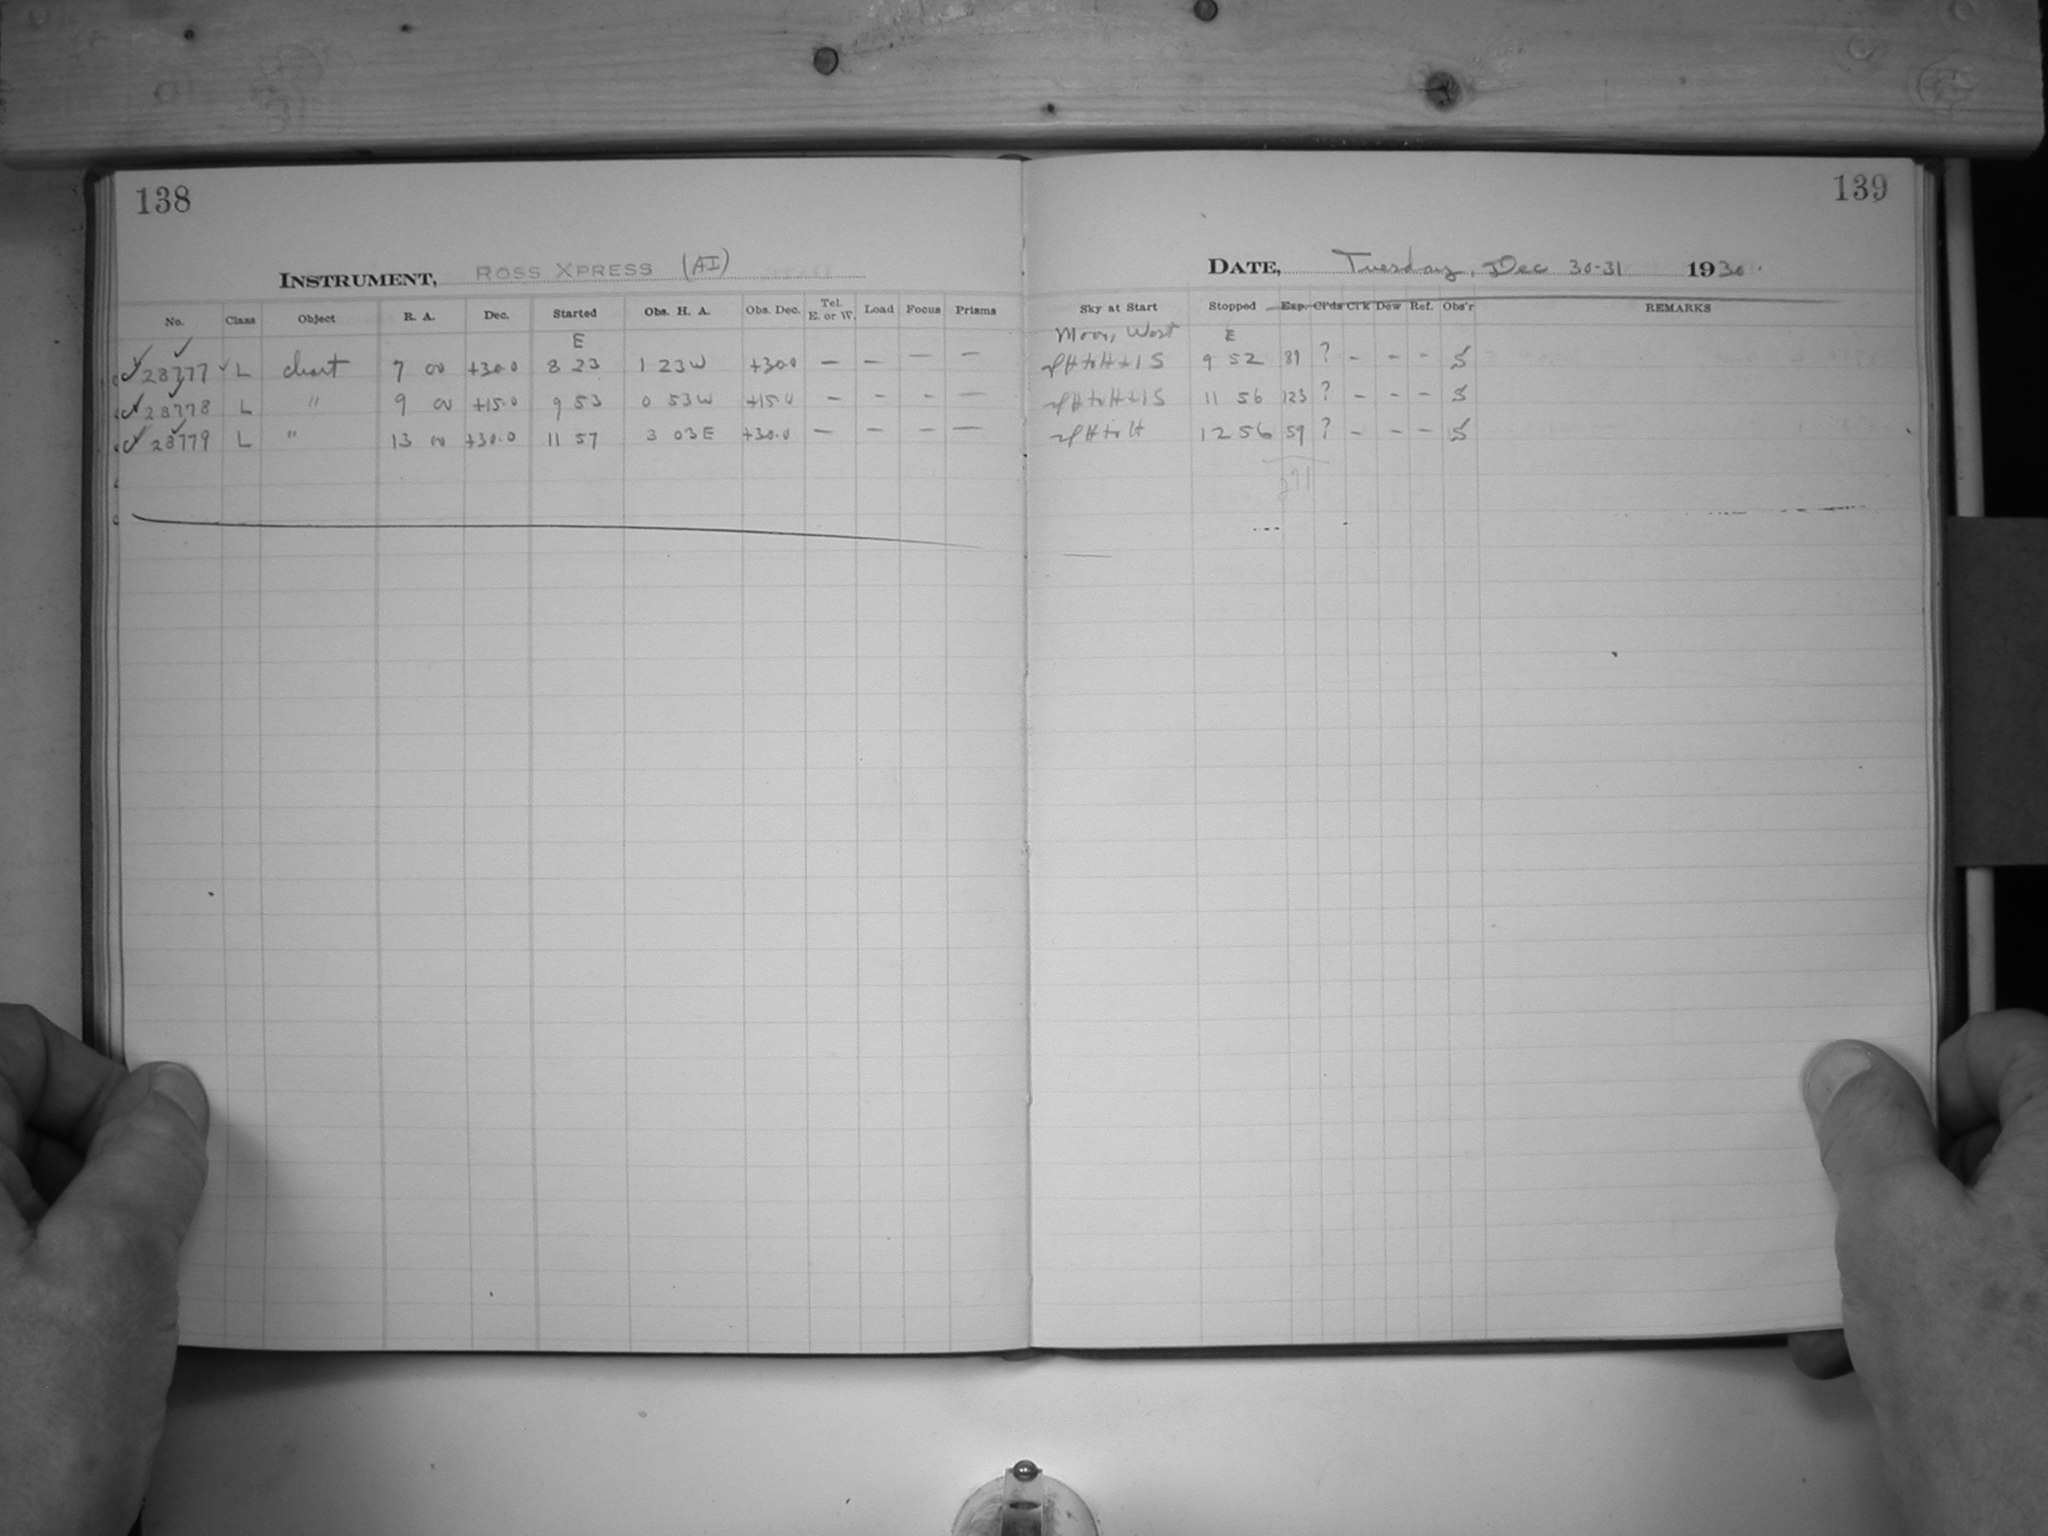 138
INSTRUMENT, ROSS XPRESS (AI)
No. Class Object R. A. Dec. Started Obs. H. A. Obs. Dec. Tel. E. or W. Load Focus Prisms
E
28777 L chart 7 00 +30.0 8 23 1 23 W +30.0 — — — —
28778 L " 9 00 +15.0 9 53 0 53 W +15.0 — — - —
28779 L " 13 00 +30.0 11 57 3 03 E +30.0 — — — —
139
DATE, Tuesday, Dec 30-31 1930.
Sky at Start Stopped Exp. Cl'ds Cl'k Dew Ref. Obs'r REMARKS
Moon, West E
9 52 89 ? - - - S
11 56 123 ? - - - S
12 56 59 ? - - - S
271